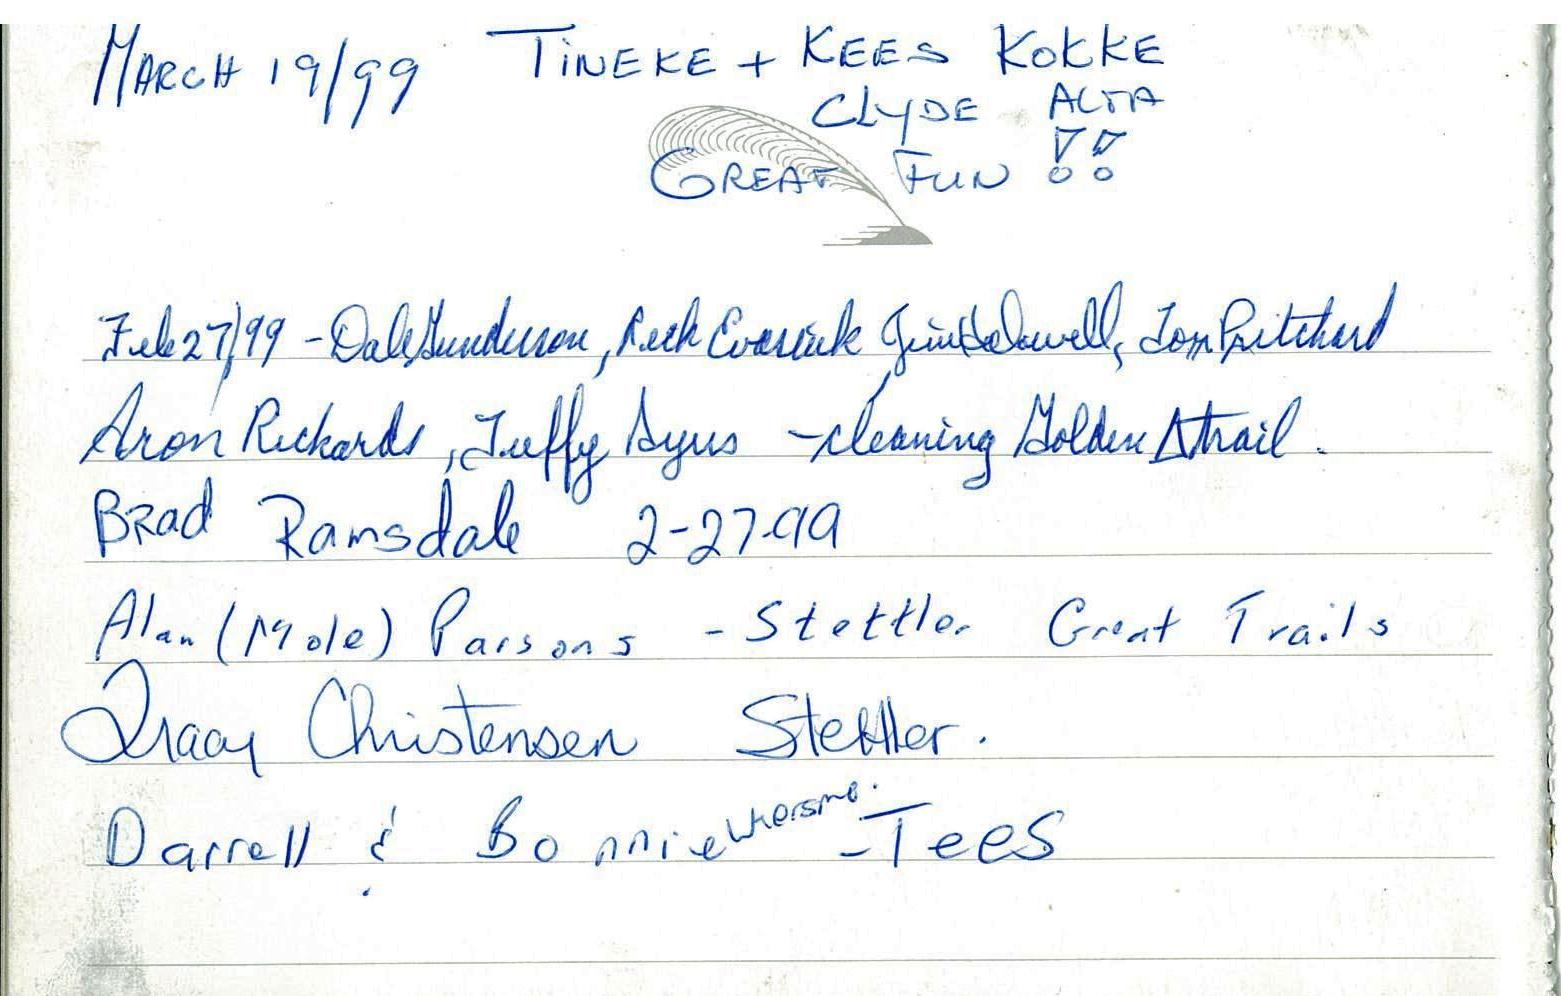 MARCH 19/99 TINEKE + KEES KOKKE
CLYDE ALTA
GREAT FUN !!
Feb 27/99 - Dale Gunderson, Tom Pritchard
Aron Rickards, Tuffy Ayus - cleaning Golden Δ trail.
Brad Ramsdale 2-27-99
Alan (Mole) Parsons - Stettler Great Trails
Tracy Christensen Stettler.
Darrell & Bonnie - Tees